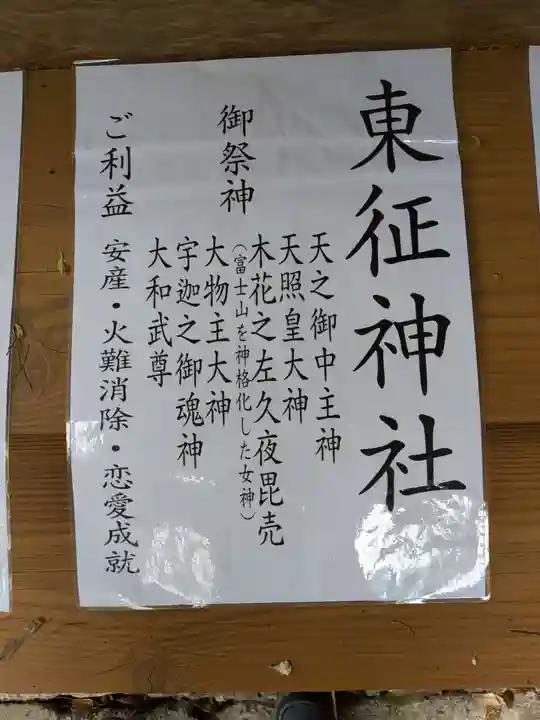 東征神社
御祭神
天之御中主神
天照皇大神
木花之左久夜毘売
(富士山を神格化した女神)
大物主大神
宇迦之御魂神
大和武尊
ご利益 安産・火難消除・恋愛成就